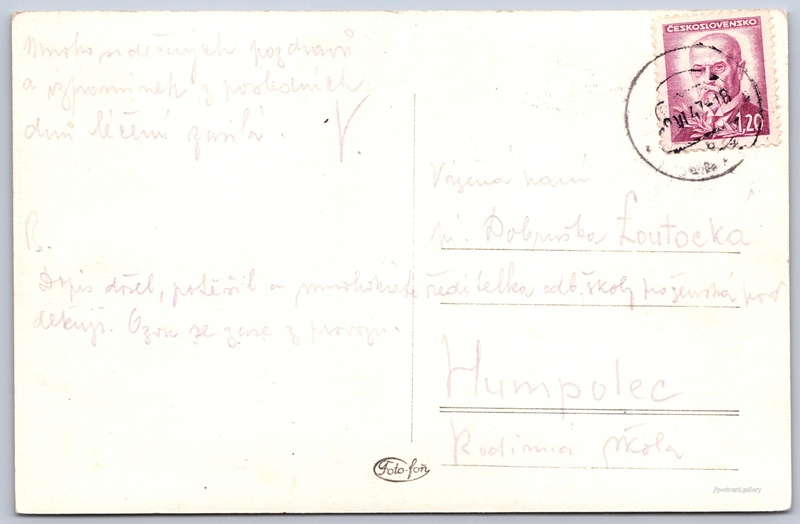 Mnoho srdečných pozdravů
a vzpomínek z posledních
dnů léčení zasílá. V.
P.
Dopis došel, potěšil a mnohokráte
děkuji. Ozvu se zase z provozu.
ČESKOSLOVENSKO
1,20
Vážená paní
p. Dobruška Loutocká
ředitelka odb. školy
Humpolec
Rodinná škola
Foto-fon
//postcard.gallery